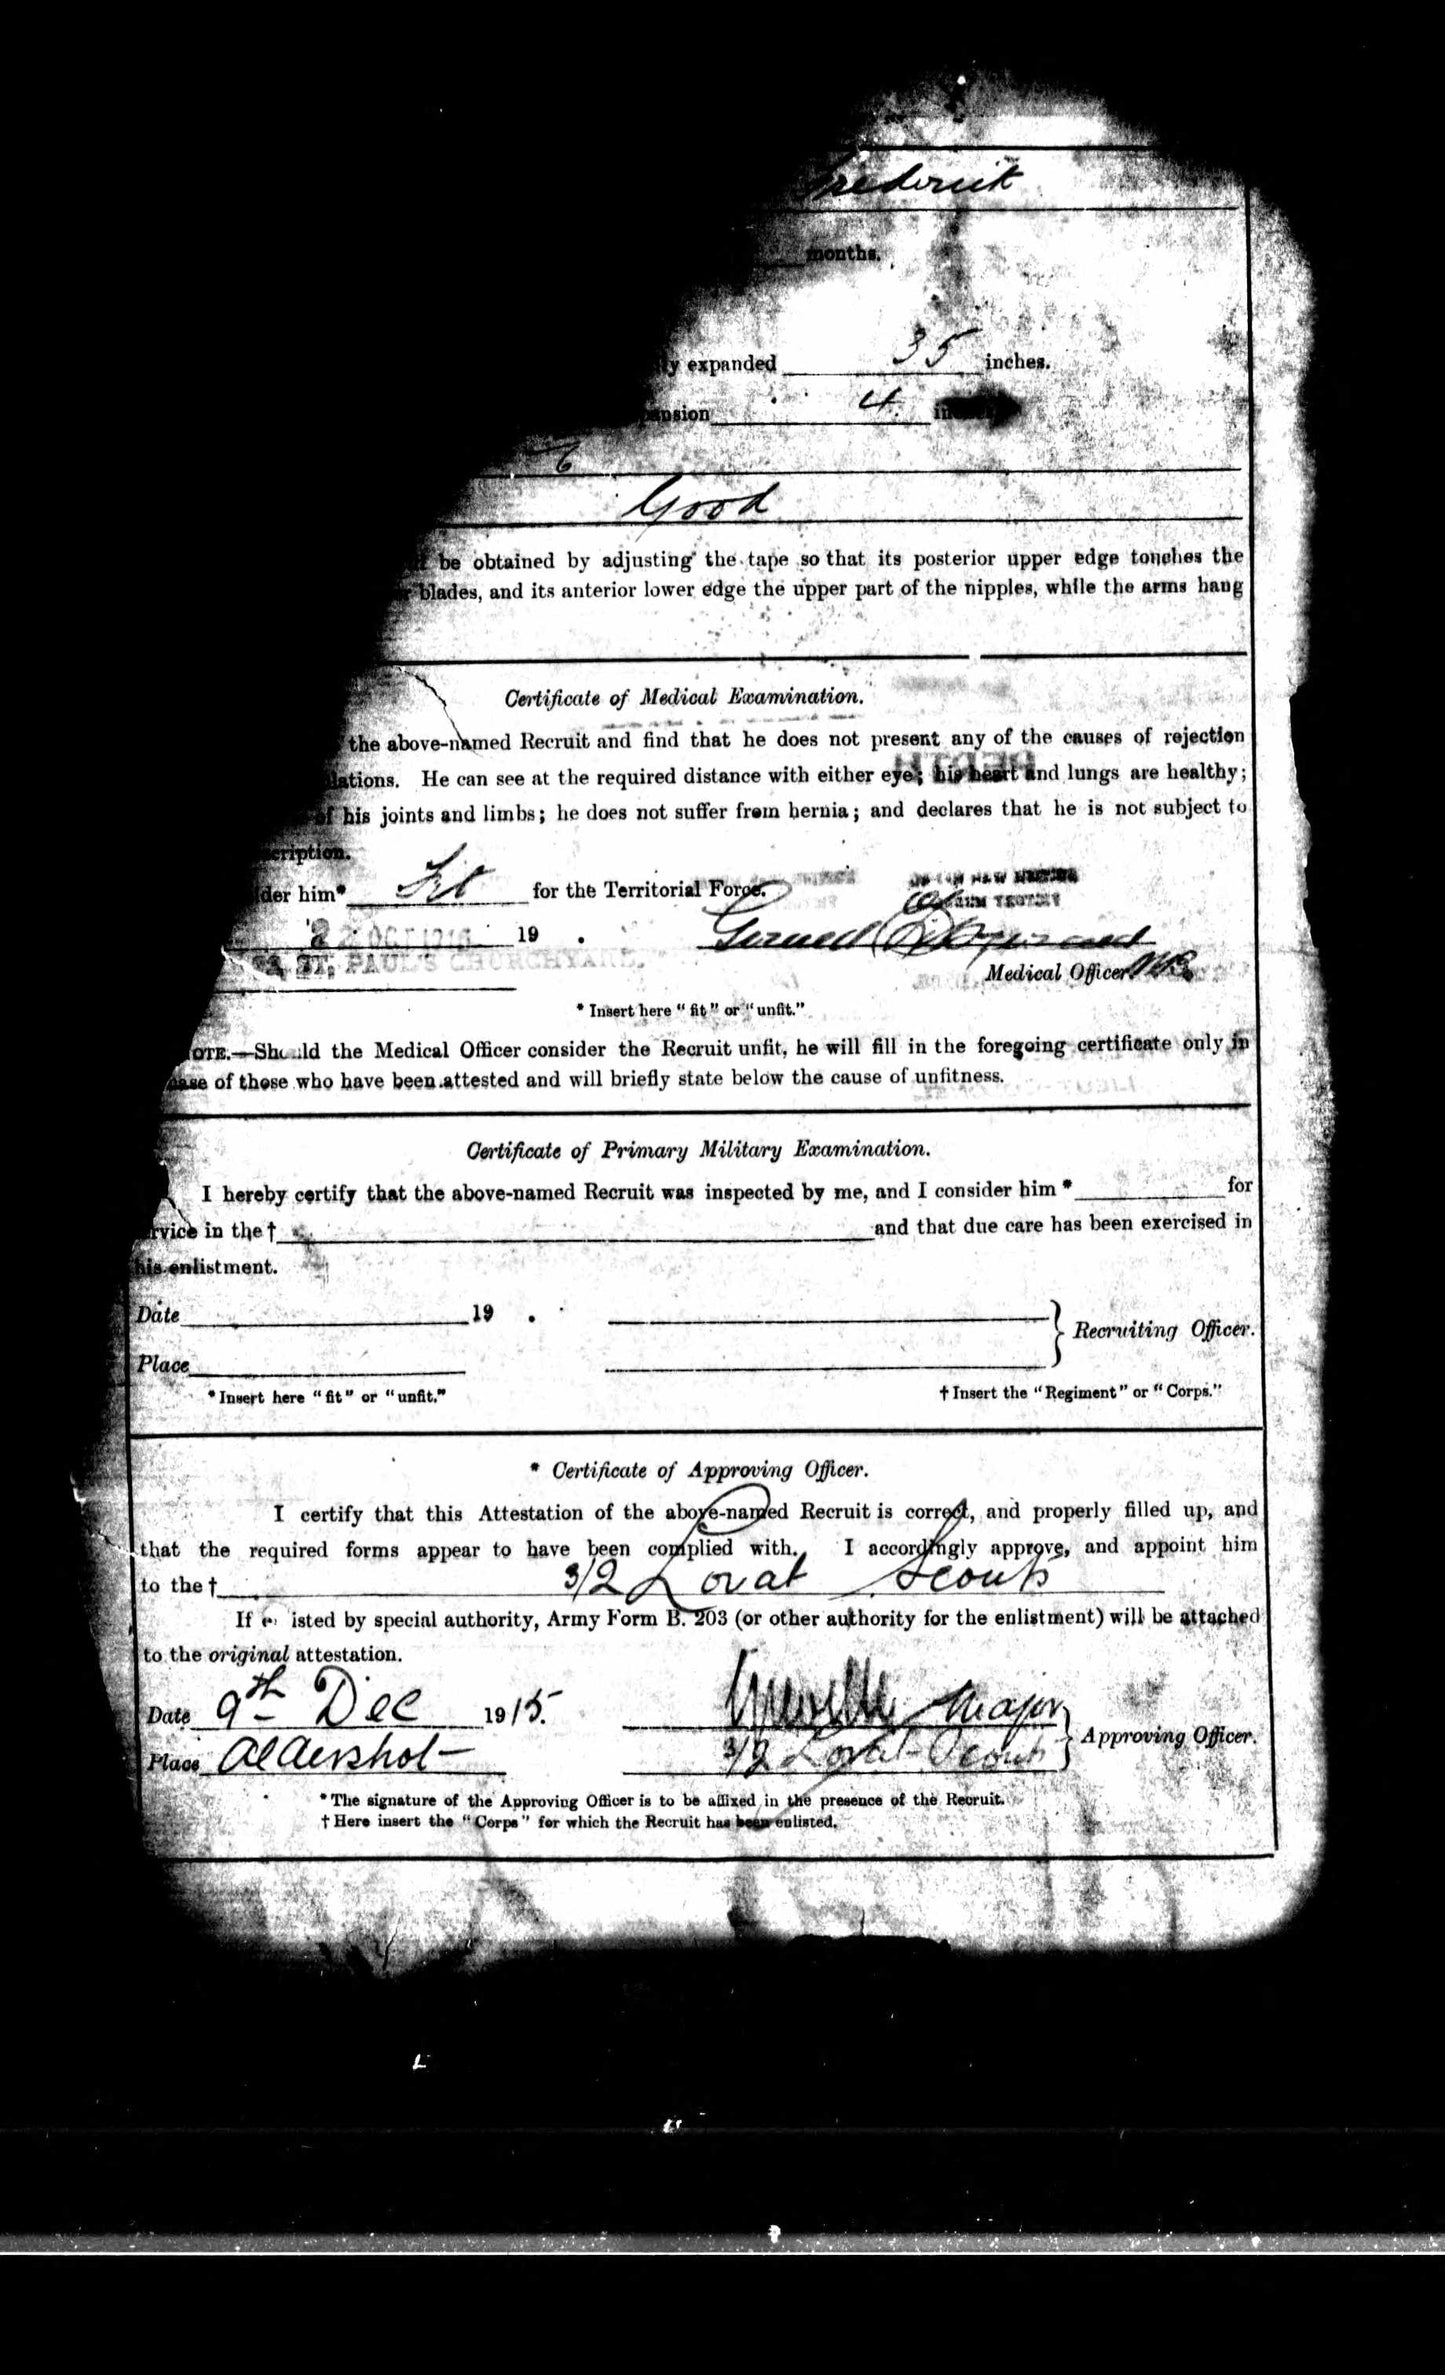 Frederick
months.
expanded 35 inches.
4.
6
Good
be obtained by adjusting the tape so that its posterior upper edge touches the
blades, and its anterior lower edge the upper part of the nipples, while the arms hang
Certificate of Medical Examination.
the above-named Recruit and find that he does not present any of the causes of rejection
He can see at the required distance with either eye; his heart and lungs are healthy;
of his joints and limbs; he does not suffer from hernia; and declares that he is not subject to
him* Fit for the Territorial Force.
OCT 19 .
ST. PAUL'S CHURCHYARD.
Medical Officer
* Insert here "fit" or "unfit."
NOTE.—Should the Medical Officer consider the Recruit unfit, he will fill in the foregoing certificate only in
case of those who have been attested and will briefly state below the cause of unfitness.
Certificate of Primary Military Examination.
I hereby certify that the above-named Recruit was inspected by me, and I consider him * for
in the † and that due care has been exercised in
his enlistment.
Date 19 .
Recruiting Officer.
Place
* Insert here "fit" or "unfit." † Insert the "Regiment" or "Corps."
* Certificate of Approving Officer.
I certify that this Attestation of the above-named Recruit is correct, and properly filled up, and
that the required forms appear to have been complied with. I accordingly approve, and appoint him
to the † 3/2 Lovat Scouts
If listed by special authority, Army Form B. 203 (or other authority for the enlistment) will be attached
to the original attestation.
Date 9th Dec 1915. Major
Approving Officer.
Place Aldershot 3/2 Lovat Scouts
* The signature of the Approving Officer is to be affixed in the presence of the Recruit.
† Here insert the "Corps" for which the Recruit has been enlisted.